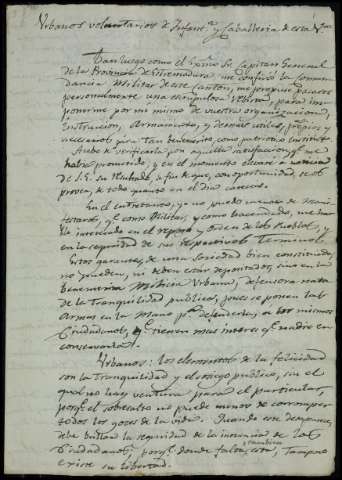 Urbanos voluntarios de Infant.ª y Caballeria de esta
Tan luego como el Exmo. Sr. Capitan General
de la Provincia de Estremadura, me confirió la Coman-
dancia Militar de este Canton, me propuse pasaros
personalmente una escrupulosa Revista, para im-
ponerme por mi mismo de vuestra organizacion,
Instruccion, Armamento, y demas utiles, propios y
necesarios para tan benemérito, como patriotico instituto.
Acabo de verificarla, con aquella satisfaccion q.e me
habia prometido, y en el momento elevaré a noticia
de S.E. su resultado, a fin de que, con oportunidad, se os
provea, de todo quanto en el dia careceis.
En el entretanto, yo no puedo menos de mani-
festaros, q.e como Militar, y como hacendado, me ha-
llo interesado en el reposo y orden de los Pueblos, y
en la seguridad de sus respectivos Terminos.
Estas garantias, de una Sociedad bien constituida,
no pueden, ni deben estar depositadas, sino en la
benemerita Milicia Urbana, defensora nata
de la Tranquilidad publica, pues se ponen las
Armas en la mano p.a defenderla, en los mismos
Ciudadanos, q.e tienen mas interes q.e nadie en
conservarla.
Urbanos: los elementos de la felicidad
son la Tranquilidad y el sosiego publico, sin el
qual no hay ventura para el particular,
porq.e el sobresalto no puede menos de corromper
todos los goces de la vida. Quando este desaparece,
debe brillar la seguridad de la inocencia de los
Ciudadanos, porq.e donde falta esta, tampoco
existe su libertad.